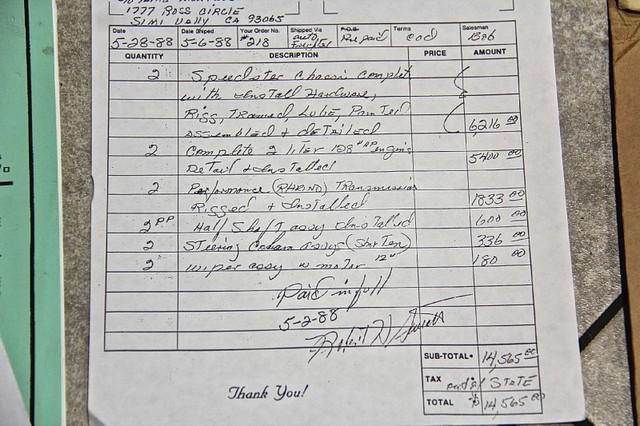 1777 ROSS CIRCLE
SIMI VALLY CA 93065
Date Date Shiped Your Order No. Shipped Via F.O.B. Terms Salesman
5-28-88 5-6-88 #218 auto Prepaid cod Bob
QUANTITY DESCRIPTION PRICE AMOUNT
2 Speedster Chassi Complet
with Install Hardware,
Rigg, Trammed, Lube, Painted
assembled + detailed 6216 00
2 Complete 2 liter 128 HP engin
Detail + Installed 5400 00
2 Performance (RHINO) Transmission
Rigged + Installed 1833 00
2 PP Half Shaft assy Installed 600 00
2 Steering Column assys 336 00
2 wiper assy w motor 12" 180 00
Paid in full
5-2-88
SUB-TOTAL 14,565 00
TAX STATE
Thank You!
TOTAL $ 14,565 00